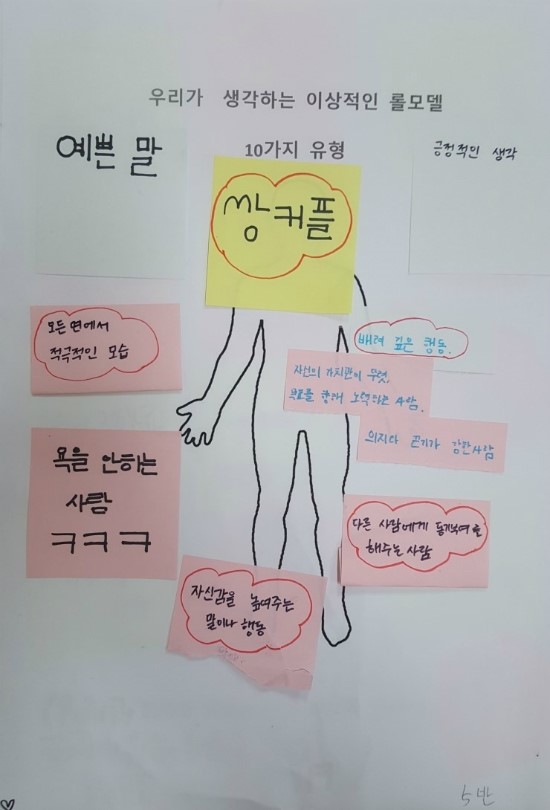 우리가 생각하는 이상적인 롤모델
10가지 유형
예쁜 말
긍정적인 생각
쌍커플
모든 면에서
적극적인 모습
배려 깊은 행동.
자신의 가치관이 뚜렷,
목표를 향해 노력하는 사람.
의지와 끈기가 강한 사람
욕을 안하는
사람
ㅋㅋㅋ
다른 사람에게 동기부여를
해주는 사람
자신감을 높여주는
말이나 행동
5반